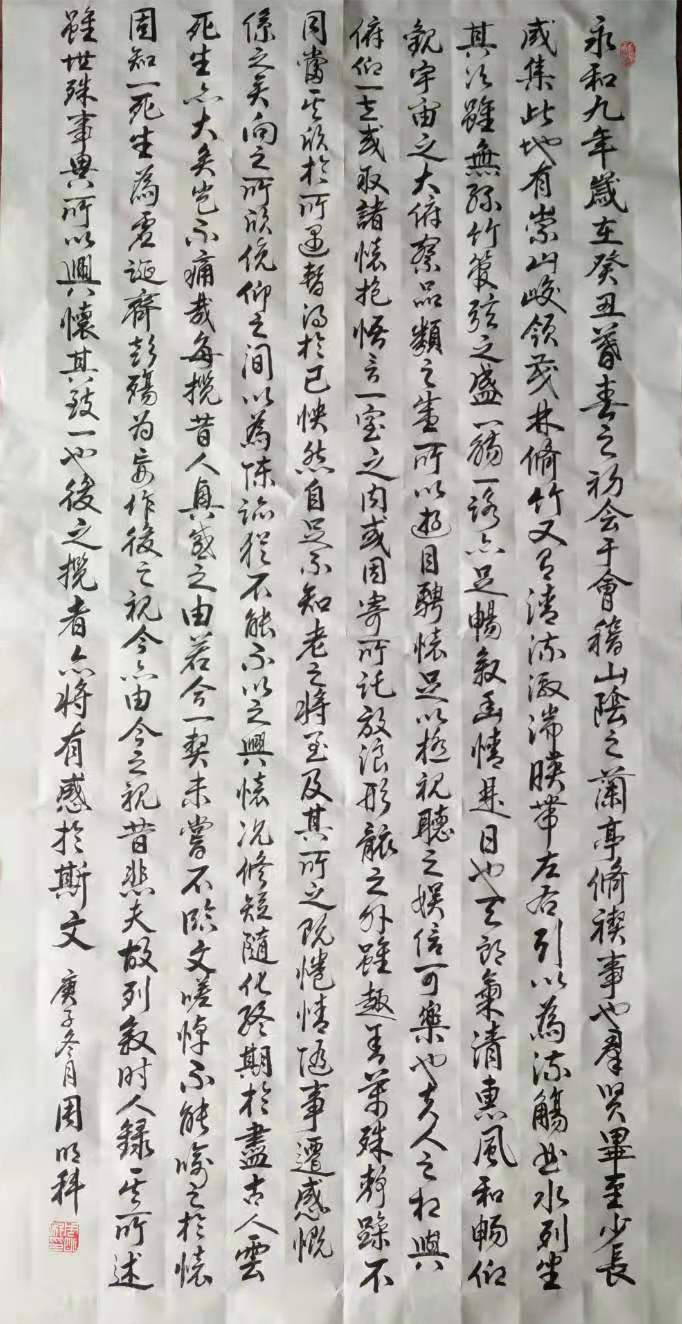 永和九年歲在癸丑暮春之初会于會稽山陰之蘭亭脩禊事也羣贤畢至少長
咸集此地有崇山峻領茂林脩竹又有清流激湍暎帶左右引以為流觴曲水列坐
其次雖無絲竹管弦之盛一觴一詠亦足暢叙幽情是日也天朗氣清惠風和畅仰
觀宇宙之大俯察品類之盛所以遊目騁懷足以極視聽之娱信可樂也夫人之相與
俯仰一世或取諸懷抱悟言一室之内或因寄所託放浪形骸之外雖趣舍萬殊静躁不
同當其欣於所遇暫得於己怏然自足不知老之将至及其所之既惓情随事遷感慨
係之矣向之所欣俛仰之间以為陈迹猶不能不以之興懷况修短隨化終期於盡古人雲
死生亦大矣豈不痛哉每揽昔人興感之由若合一契未嘗不臨文嗟悼不能喻之於懷
固知一死生為虚诞齊彭殤为妄作後之視今亦由今之視昔悲夫故列叙时人録其所述
雖世殊事異所以興懷其致一也後之揽者亦将有感於斯文 庚子冬月周明科